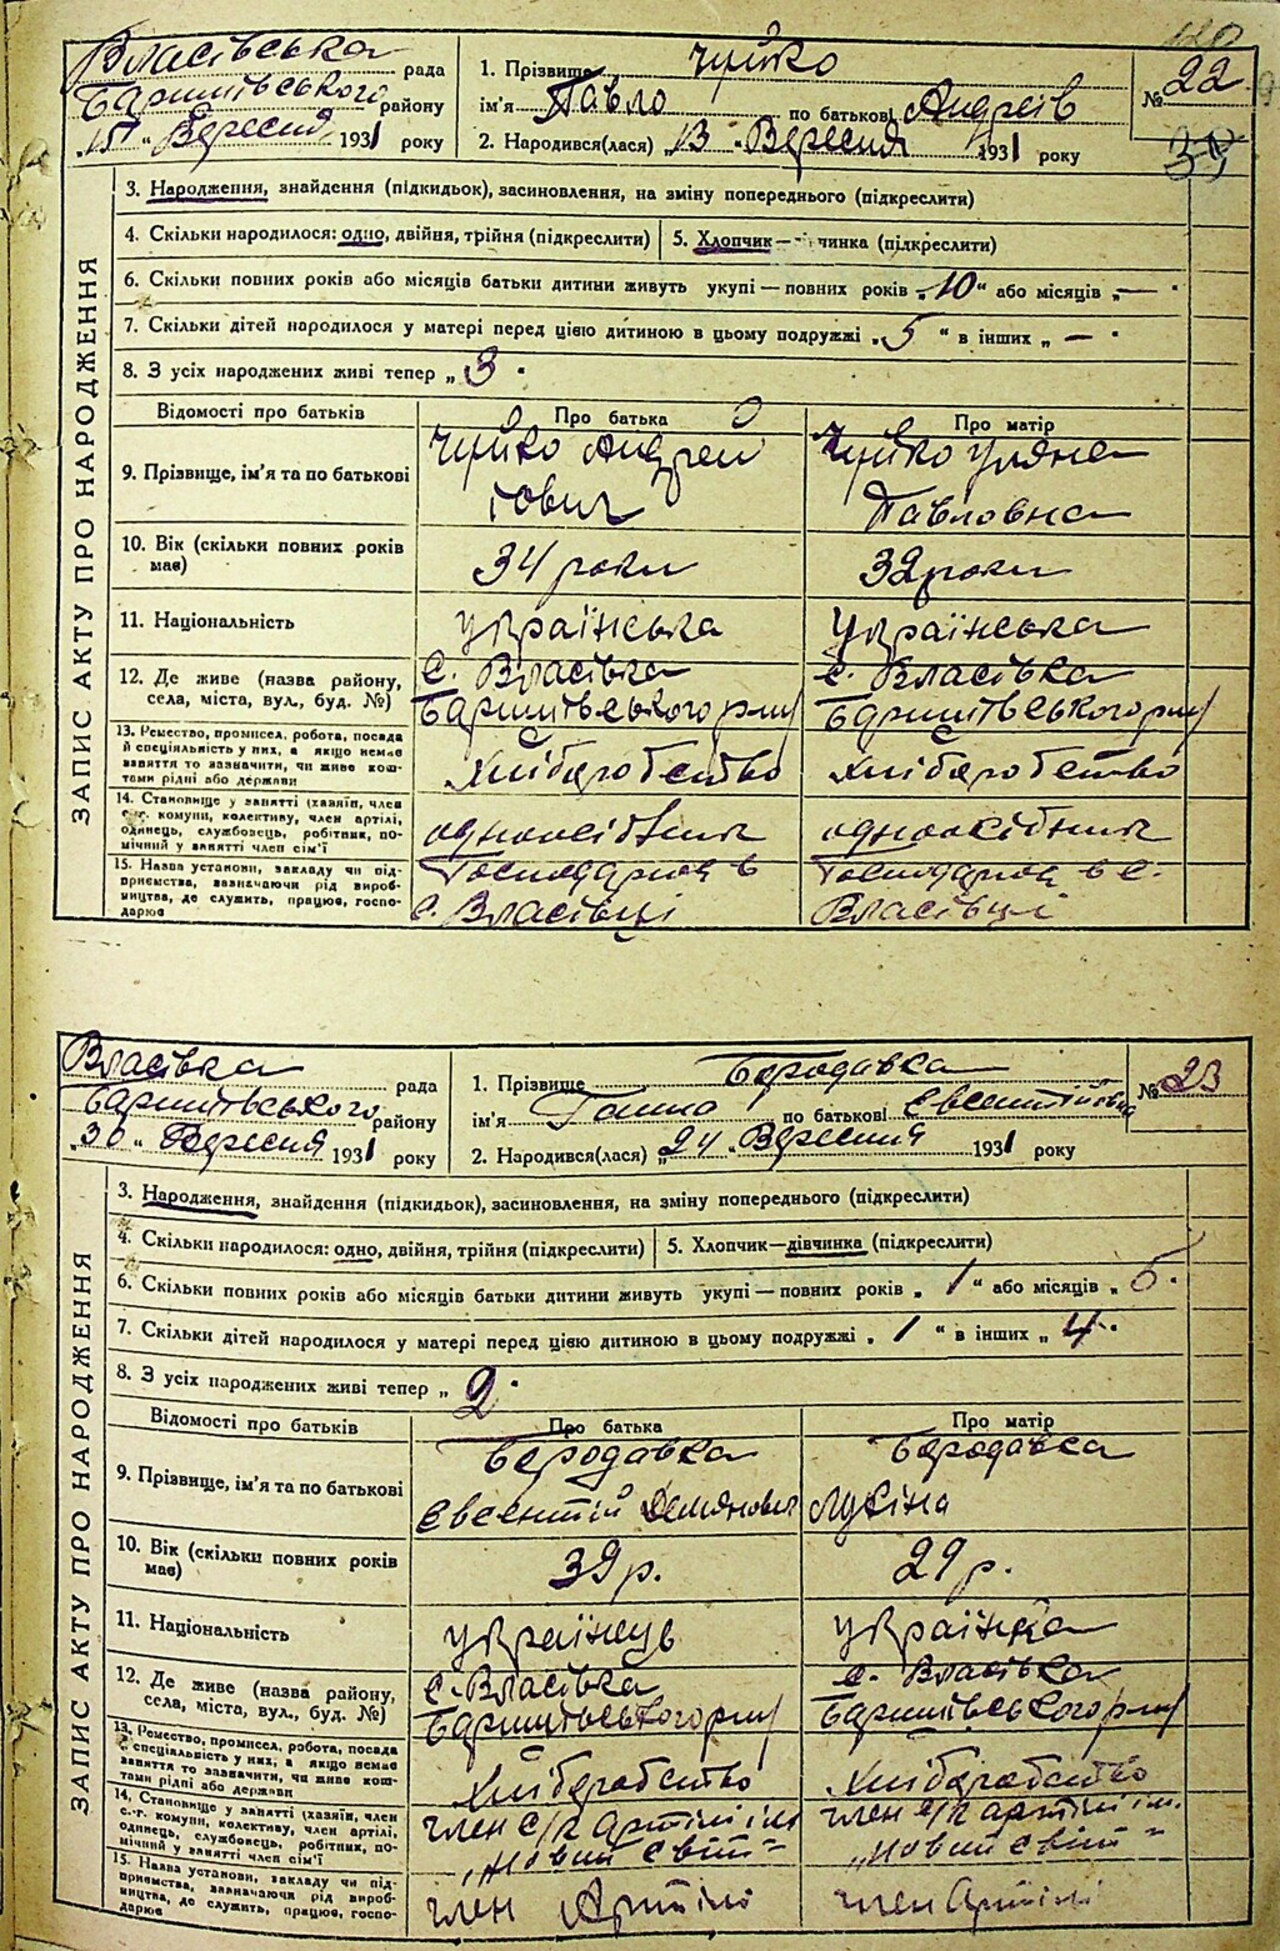 120
Власівська рада
Баришівського району
„15" Вересня 1931 року
1. Прізвище Чуйко
ім'я Павло по батькові Андреів
2. Народився(лася) „13" Вересня 1931 року
№ 22
ЗАПИС АКТУ ПРО НАРОДЖЕННЯ
3. Народження, знайдення (підкидьок), засиновлення, на зміну попереднього (підкреслити)
4. Скільки народилося: одно, двійня, трійня (підкреслити)
5. Хлопчик— чинка (підкреслити)
6. Скільки повних років або місяців батьки дитини живуть укупі — повних років „10" або місяців „—"
7. Скільки дітей народилося у матері перед цією дитиною в цьому подружжі „5" в інших „—"
8. З усіх народжених живі тепер „3"
Відомості про батьків Про батька Про матір
9. Прізвище, ім'я та по батькові
Чуйко Андрей
Чуйко Уляна
Павловна
10. Вік (скільки повних років має)
34 роки 32 роки
11. Національність українська українська
12. Де живе (назва району, села, міста, вул., буд. №)
с. Власівка с. Власівка
Баришівського р-ну Баришівського р-ну
13. Ремество, промисел, робота, посада
й спеціяльність у них, а якщо немає
заняття то зазначити, чи живе кош-
тами рідні або держави
хліборобство хліборобство
14. Становище у занятті (хазяїн, член
с.-г. комуни, колективу, член артілі,
одинець, службовець, робітник, по-
мічний у занятті член сім'ї
одноосібник одноосібник
15. Назва установи, закладу чи під-
приємства, зазначаючи рід вироб-
ництва, де служить, працює, госпо-
дарює
Господарюя в Господарюя в с.
с. Власівці Власівці
Власівка рада
Баришівського району
„30" Вересня 1931 року
1. Прізвище Бородавка
ім'я Ганна по батькові Евсентійовна
2. Народився(лася) „24" Вересня 1931 року
№ 23
ЗАПИС АКТУ ПРО НАРОДЖЕННЯ
3. Народження, знайдення (підкидьок), засиновлення, на зміну попереднього (підкреслити)
4. Скільки народилося: одно, двійня, трійня (підкреслити)
5. Хлопчик—дівчинка (підкреслити)
6. Скільки повних років або місяців батьки дитини живуть укупі — повних років „1" або місяців „5"
7. Скільки дітей народилося у матері перед цією дитиною в цьому подружжі „1" в інших „4"
8. З усіх народжених живі тепер „2"
Відомості про батьків Про батька Про матір
9. Прізвище, ім'я та по батькові
Бородавка Бородавка
Евсентій Демянович
10. Вік (скільки повних років має)
39 р. 29 р.
11. Національність українець українка
12. Де живе (назва району, села, міста, вул., буд. №)
с. Власівка с. Власівка
Баришівського р-ну Баришівського р-ну
13. Ремество, промисел, робота, посада
й спеціяльність у них, а якщо немає
заняття то зазначити, чи живе кош-
тами рідні або держави
хліборобство хліборобство
14. Становище у занятті (хазяїн, член
с.-г. комуни, колективу, член артілі,
одинець, службовець, робітник, по-
мічний у занятті член сім'ї
член с/г артілі ім. член с/г артілі ім.
„Новий світ" „Новий світ"
15. Назва установи, закладу чи під-
приємства, зазначаючи рід вироб-
ництва, де служить, працює, госпо-
дарює
член Артілі член Артілі